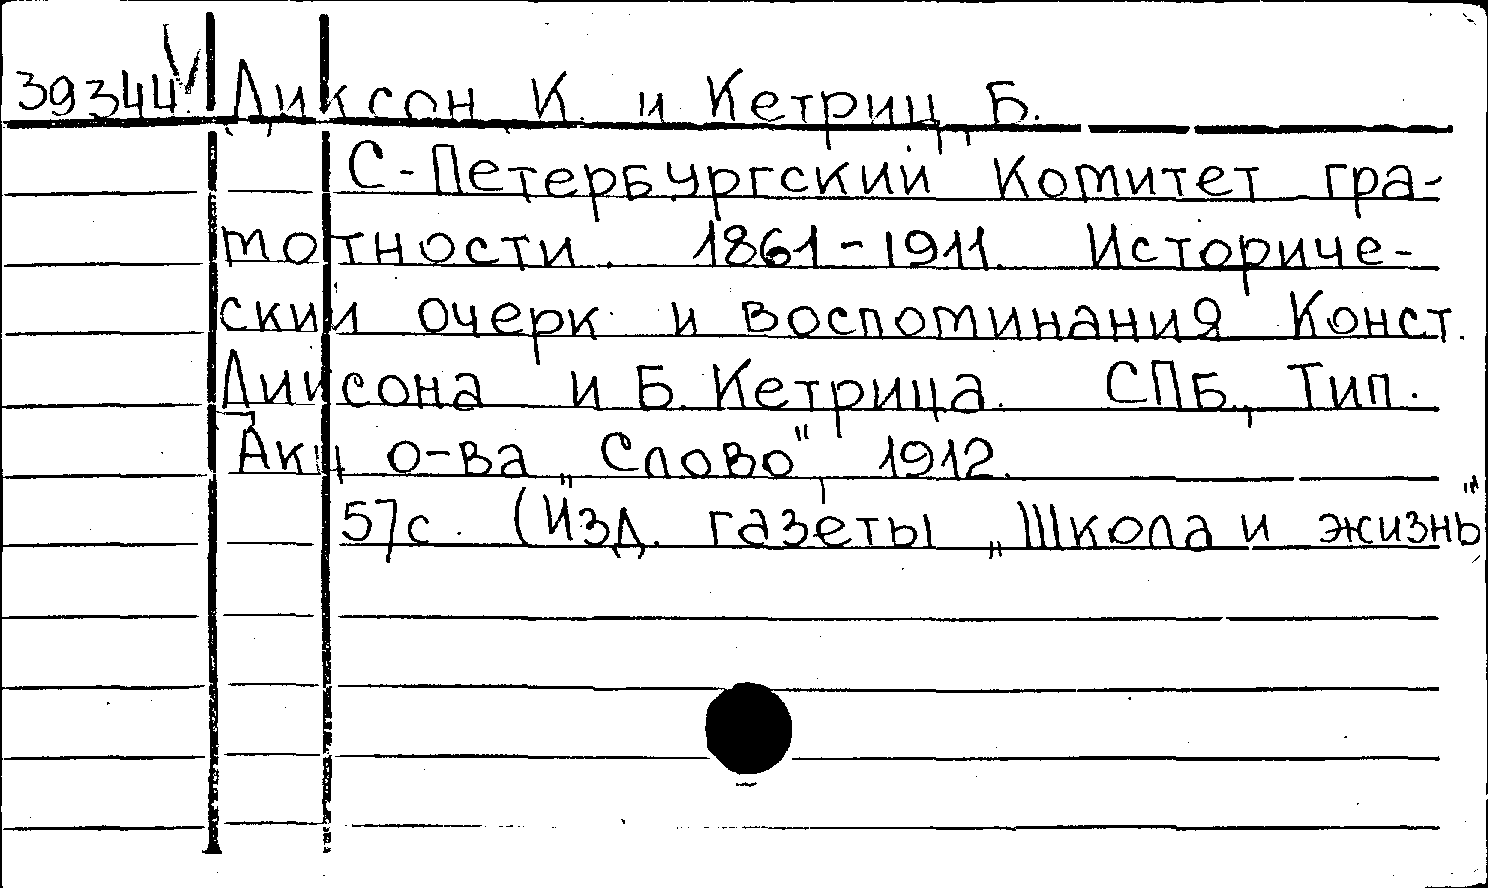 39344 V Диксон, К. и Кетриц, Б.
С-Петербургский Комитет гра-
мотности. 1861-1911. Историче-
ский очерк и воспоминания Конст.
Диксона и Б. Кетрица. СПБ, Тип.
Акц о-ва „Слово", 1912.
57с. (Изд. газеты „Школа и жизнь"